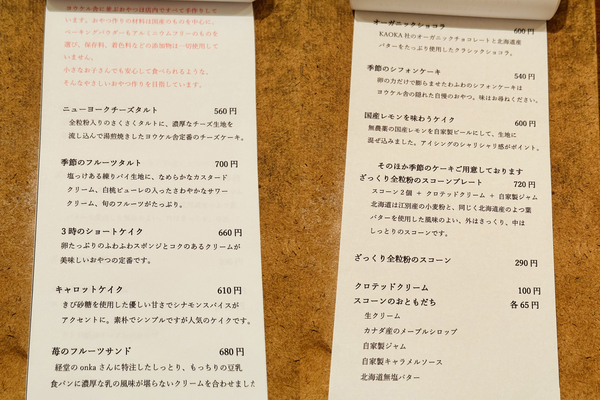 ヨウケル舎に並ぶおやつは店内ですべて手作りして
います。おやつ作りの材料は国産のものを中心に、
ベーキングパウダーもアルミニウムフリーのものを
選び、保存料、着色料などの添加物は一切使用して
いません。
小さなお子さんでも安心して食べられるような、
そんなやさしいおやつ作りを目指しています。
ニューヨークチーズタルト 560 円
全粒粉入りのさくさくタルトに、濃厚なチーズ生地を
流し込んで湯煎焼きしたヨウケル舎定番のチーズケーキ。
季節のフルーツタルト 700 円
塩っけある練りパイ生地に、なめらかなカスタード
クリーム、白桃ピューレの入ったさわやかなサワー
クリーム、旬のフルーツがたっぷり。
3時のショートケイク 660 円
卵たっぷりのふわふわスポンジとコクのあるクリームが
美味しいおやつの定番です。
キャロットケイク 610 円
きび砂糖を使用した優しい甘さでシナモンスパイスが
アクセントに。素朴でシンプルですが人気のケイクです。
苺のフルーツサンド 680 円
経堂の onka さんに特注したしっとり、もっちりの豆乳
食パンに濃厚な乳の風味が堪らないクリームを合わせました
オーガニックショコラ 600 円
KAOKA 社のオーガニックチョコレートと北海道産
バターをたっぷり使用したクラシックショコラ。
季節のシフォンケーキ 540 円
卵の力だけで膨らませたわふわのシフォンケーキは
ヨウケル舎の隠れた自慢のおやつ。味はお尋ねください。
国産レモンを味わうケイク 600 円
無農薬の国産レモンを自家製ピールにして、生地に
混ぜ込みました。アイシングのシャリシャリ感がポイント。
そのほか季節のケーキご用意しております
ざっくり全粒粉のスコーンプレート 720 円
スコーン2個 + クロテッドクリーム + 自家製ジャム
北海道は江別産の小麦粉と、同じく北海道産のよつ葉
バターを使用した風味のよい、外はさっくり、中は
しっとりのスコーンです。
ざっくり全粒粉のスコーン 290 円
クロテッドクリーム 100 円
スコーンのおともだち 各 65 円
生クリーム
カナダ産のメープルシロップ
自家製ジャム
自家製キャラメルソース
北海道無塩バター